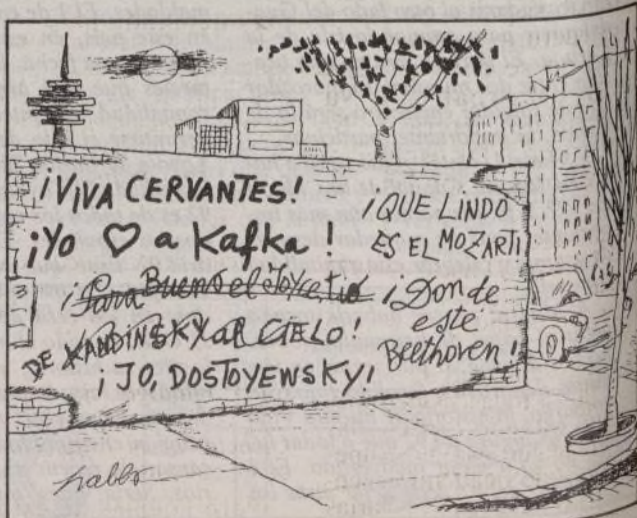 ¡VIVA CERVANTES!
¡Yo ♡ a Kafka!
¡Para Bueno el Joyce, tío
DE KANDINSKY AL CIELO!
¡JO, DOSTOYEWSKY!
¡QUE LINDO
ES EL MOZART!
¡Donde
este
Beethoven!
pablo